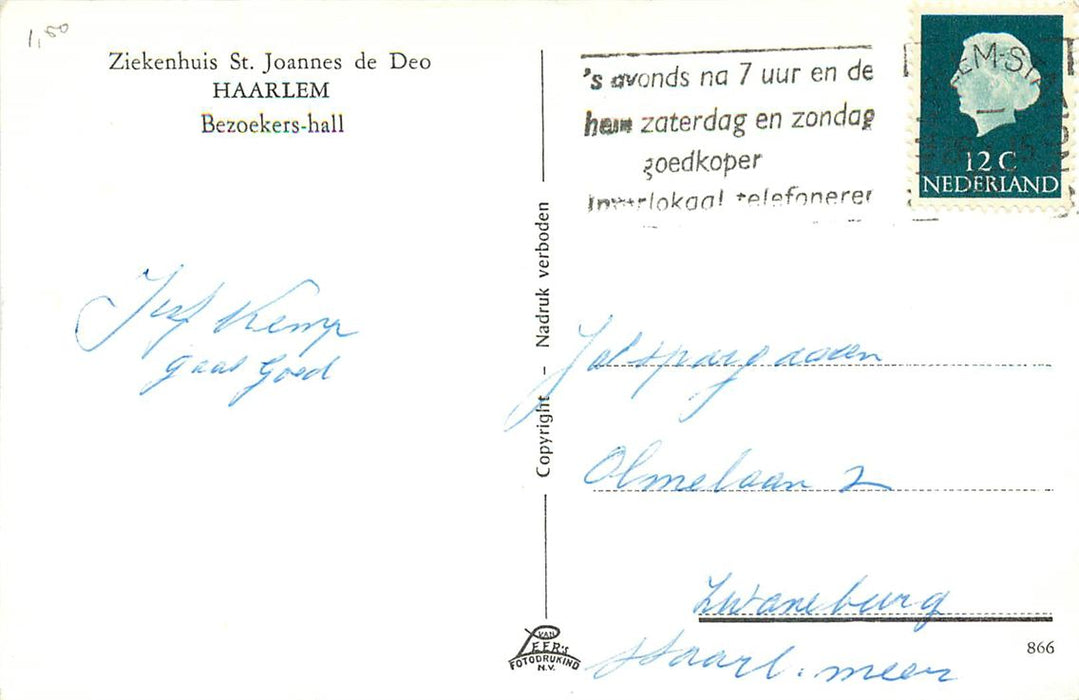 1,50
Ziekenhuis St. Joannes de Deo
HAARLEM
Bezoekers-hall
Kemp
gaat Goed
Copyright - Nadruk verboden
's avonds na 7 uur en de
hele zaterdag en zondag
goedkoper
interlokaal telefoneren
12 C
NEDERLAND
Olmelaan 2
Zwaneburg
Haarl. meer
VAN
LEER'S
FOTODRUKIND
N.V.
866